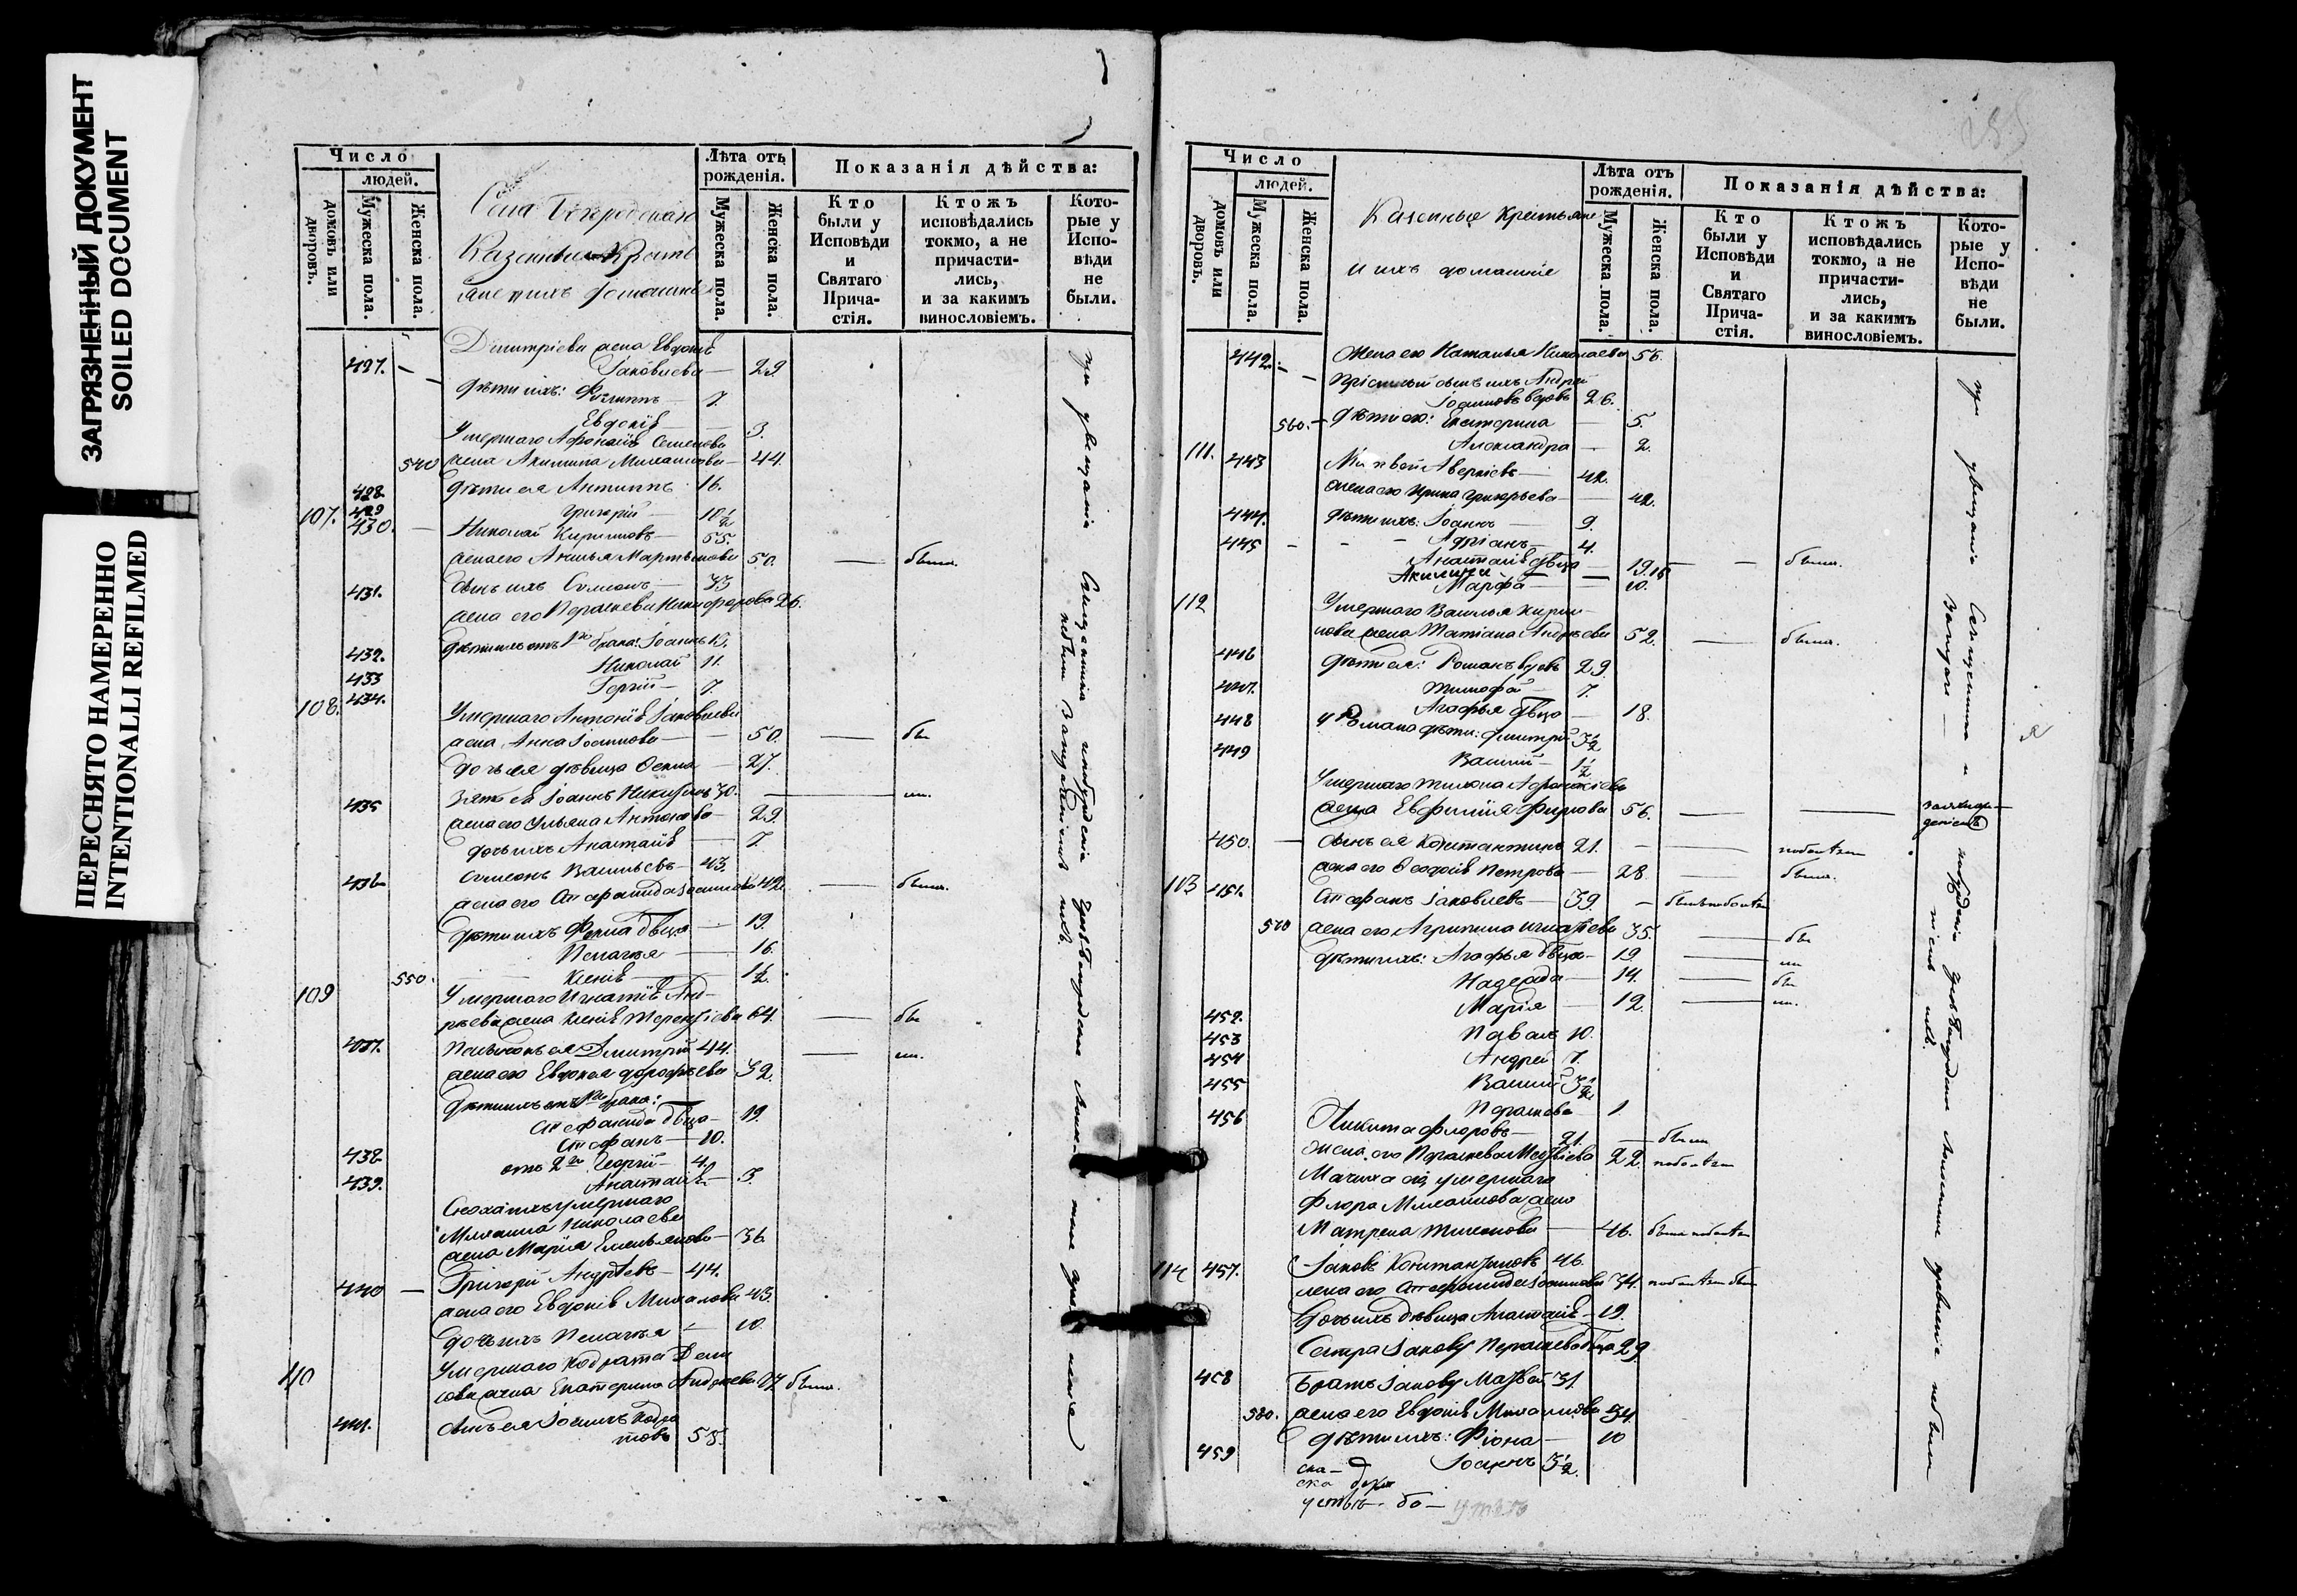 ЗАГРЯЗНЕННЫЙ ДОКУМЕНТ
SOILED DOCUMENT
ПЕРЕСНЯТО НАМЕРЕННО
INTENTIONALLI REFILMED
Число
людей.
домовъ или дворовъ.
Мужеска пола.
Женска пола.
Села
Казенные Кресть
яне и ихъ домашніе
Лѣта отъ рожденія.
Мужеска пола.
Женска пола.
Показанія дѣйства:
Кто были у Исповѣди и Святаго Прича-стія.
Ктожъ исповѣдались токмо, а не причасти-лись, и за какимъ винословіемъ.
Кото-рые у Испо-вѣди не были.
Димитріева жена Евдокія
427. Іаковлева — 29
дѣти ихъ: Филиппъ — 7.
Евдокія — 3.
Умершаго Афонасія Семенова
540 жена Акилина Михайлова — 44.
428 дѣти ея Антиппъ 16.
429 Григорій — 10½
107. 430. Николай Кириловъ — 55.
жена его Анисья Мартынова 50. — была.
431. сынъ ихъ Симеонъ — 33
жена его Параскева Никифорова 26.
432. дѣти ихъ отъ 1го брака: Іоаннъ 13.
433 Николай 11.
434. Георгій — 7.
108. Умершаго Антонія Іаковлева
жена Анна Іосифова — 50. — бы
дочь ея дѣвица Ксенія — 27.
435 зять ея Іоаннъ Никитинъ 30. — ли.
жена его Ульяна Антонова — 29
дочь ихъ Анастасія — 7.
436 Симеонъ Васильевъ — 43.
жена его Стефанида Іосифова 42. — была.
дѣти ихъ Фекла дѣвца — 19.
Пелагья — 16.
550. Ксенія — 1½.
109 Умершаго Игнатія Анд-
рѣева жена Ксенія Терентіева 64. — бы
437. Пасынокъ ея Димитрій 44. — ли.
жена его Евдокия Дорофѣева 32.
дѣти ихъ отъ 1го брака:
Стефанида дѣвца — 19.
438 Стефанъ — 10.
439. отъ 2го Георгій — 4.
Анастасія — 3.
Сноха ихъ умершаго
Михаила Николаева
жена Марія Емельянова — 36.
440 — Григорій Андрѣевъ — 44.
жена его Евдокія Михайлова 43.
дочь ихъ Пелагья — 10
110 Умершаго Кодрата Дени
сова жена Екатерина Андреева 77 была.
441. сынъ ея Іосифъ Кодра
товъ 58.
при увещаніи Священника и побужденіи
небыли
Число
людей.
домовъ или дворовъ.
Мужеска пола.
Женска пола.
Казенные Крестьяне
и ихъ домашніе
Лѣта отъ рожденія.
Мужеска пола.
Женска пола.
Показанія дѣйства:
Кто были у Исповѣди и Святаго Прича-стія.
Ктожъ исповѣдались токмо, а не причасти-лись, и за какимъ винословіемъ.
Кото-рые у Испо-вѣди не были.
442. жена его Наталья Николаева 56.
Пріемный сынъ ихъ Андрей
Іосифовъ вдовъ 26.
560. — дѣти его: Екатерина — 5.
Александра — 2.
111. 443 Матвей Аверкіевъ — 42.
жена его Ирина Григорьева — 42.
444. дѣти ихъ: Іоаннъ — 9.
445 Адріанъ — 4.
Анастасія дѣвца — 19. — была.
Акилина — 15
Марфа — 10.
112 Умершаго Василья Кири-
лова жена Татіана Андрѣева 52. — была.
446 дѣти ея: Романъ вдовъ 29
447. Тимофей — 7.
Агафья дѣвца — 18.
448 у Романа дѣти: Димитрій 3½
449 Василій — 1½
Умершаго Тихона Афонасіева
жена Евфимія Фирсова 56.
450. — сынъ ея Константинъ 21.
жена его Феодосія Петрова — 28 — была.
113 451. Стефанъ Іаковлевъ — 39.
570 жена его Агрипина Игнатіева 35. — бы
дѣти ихъ: Агафья дѣвца — 19 — ли
Надежда — 14. — бы
Марія — 12. — ли.
452. Павелъ 10.
453 Андрей 7.
454 Василій 3½
455 Параскева — 1
456 Никита Флоровъ — 21. — были
жена его Параскева Матвіева 22.
Мачиха ея умершаго
Флора Михайлова жена
Матрена Тихонова — 46.
114 457. Іаковъ Константиновъ 46.
жена его Стефанида Іосифова 34.
дочь ихъ дѣвица Анастасія — 19.
Сестра Іакову Параскева дѣвца 29
458 Братъ Іакову Матвей 31
580. жена его Евдокія Михайлова 34.
дѣти ихъ: Фіона — 10
459 Іоаннъ 3½.
при увещаніи Священника и побужденіи